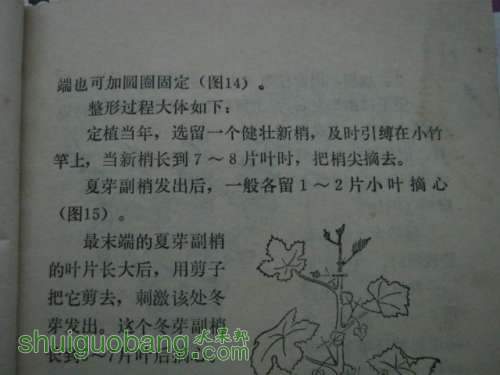 端也可加圆圈固定（图14）。
整形过程大体如下：
定植当年，选留一个健壮新梢，及时引缚在小竹
竿上，当新梢长到7～8片叶时，把梢尖摘去。
夏芽副梢发出后，一般各留1～2片小叶摘心
（图15）。
最末端的夏芽副梢
的叶片长大后，用剪子
把它剪去，刺激该处冬
芽发出。这个冬芽副梢
长到 7片叶后摘心
水果邦
shuiguobang.com